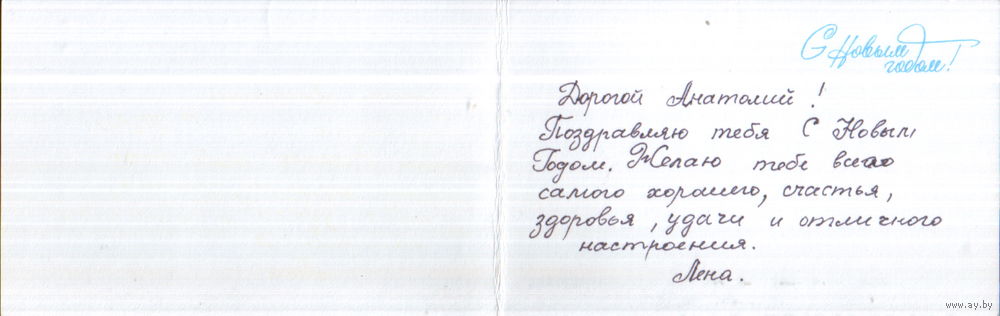 С Новым
годом!
Дорогой Анатолий!
Поздравляю тебя С Новым
Годом. Желаю тебе всего
самого хорошего, счастья,
здоровья, удачи и отличного
настроения.
Лена.
www.ay.by